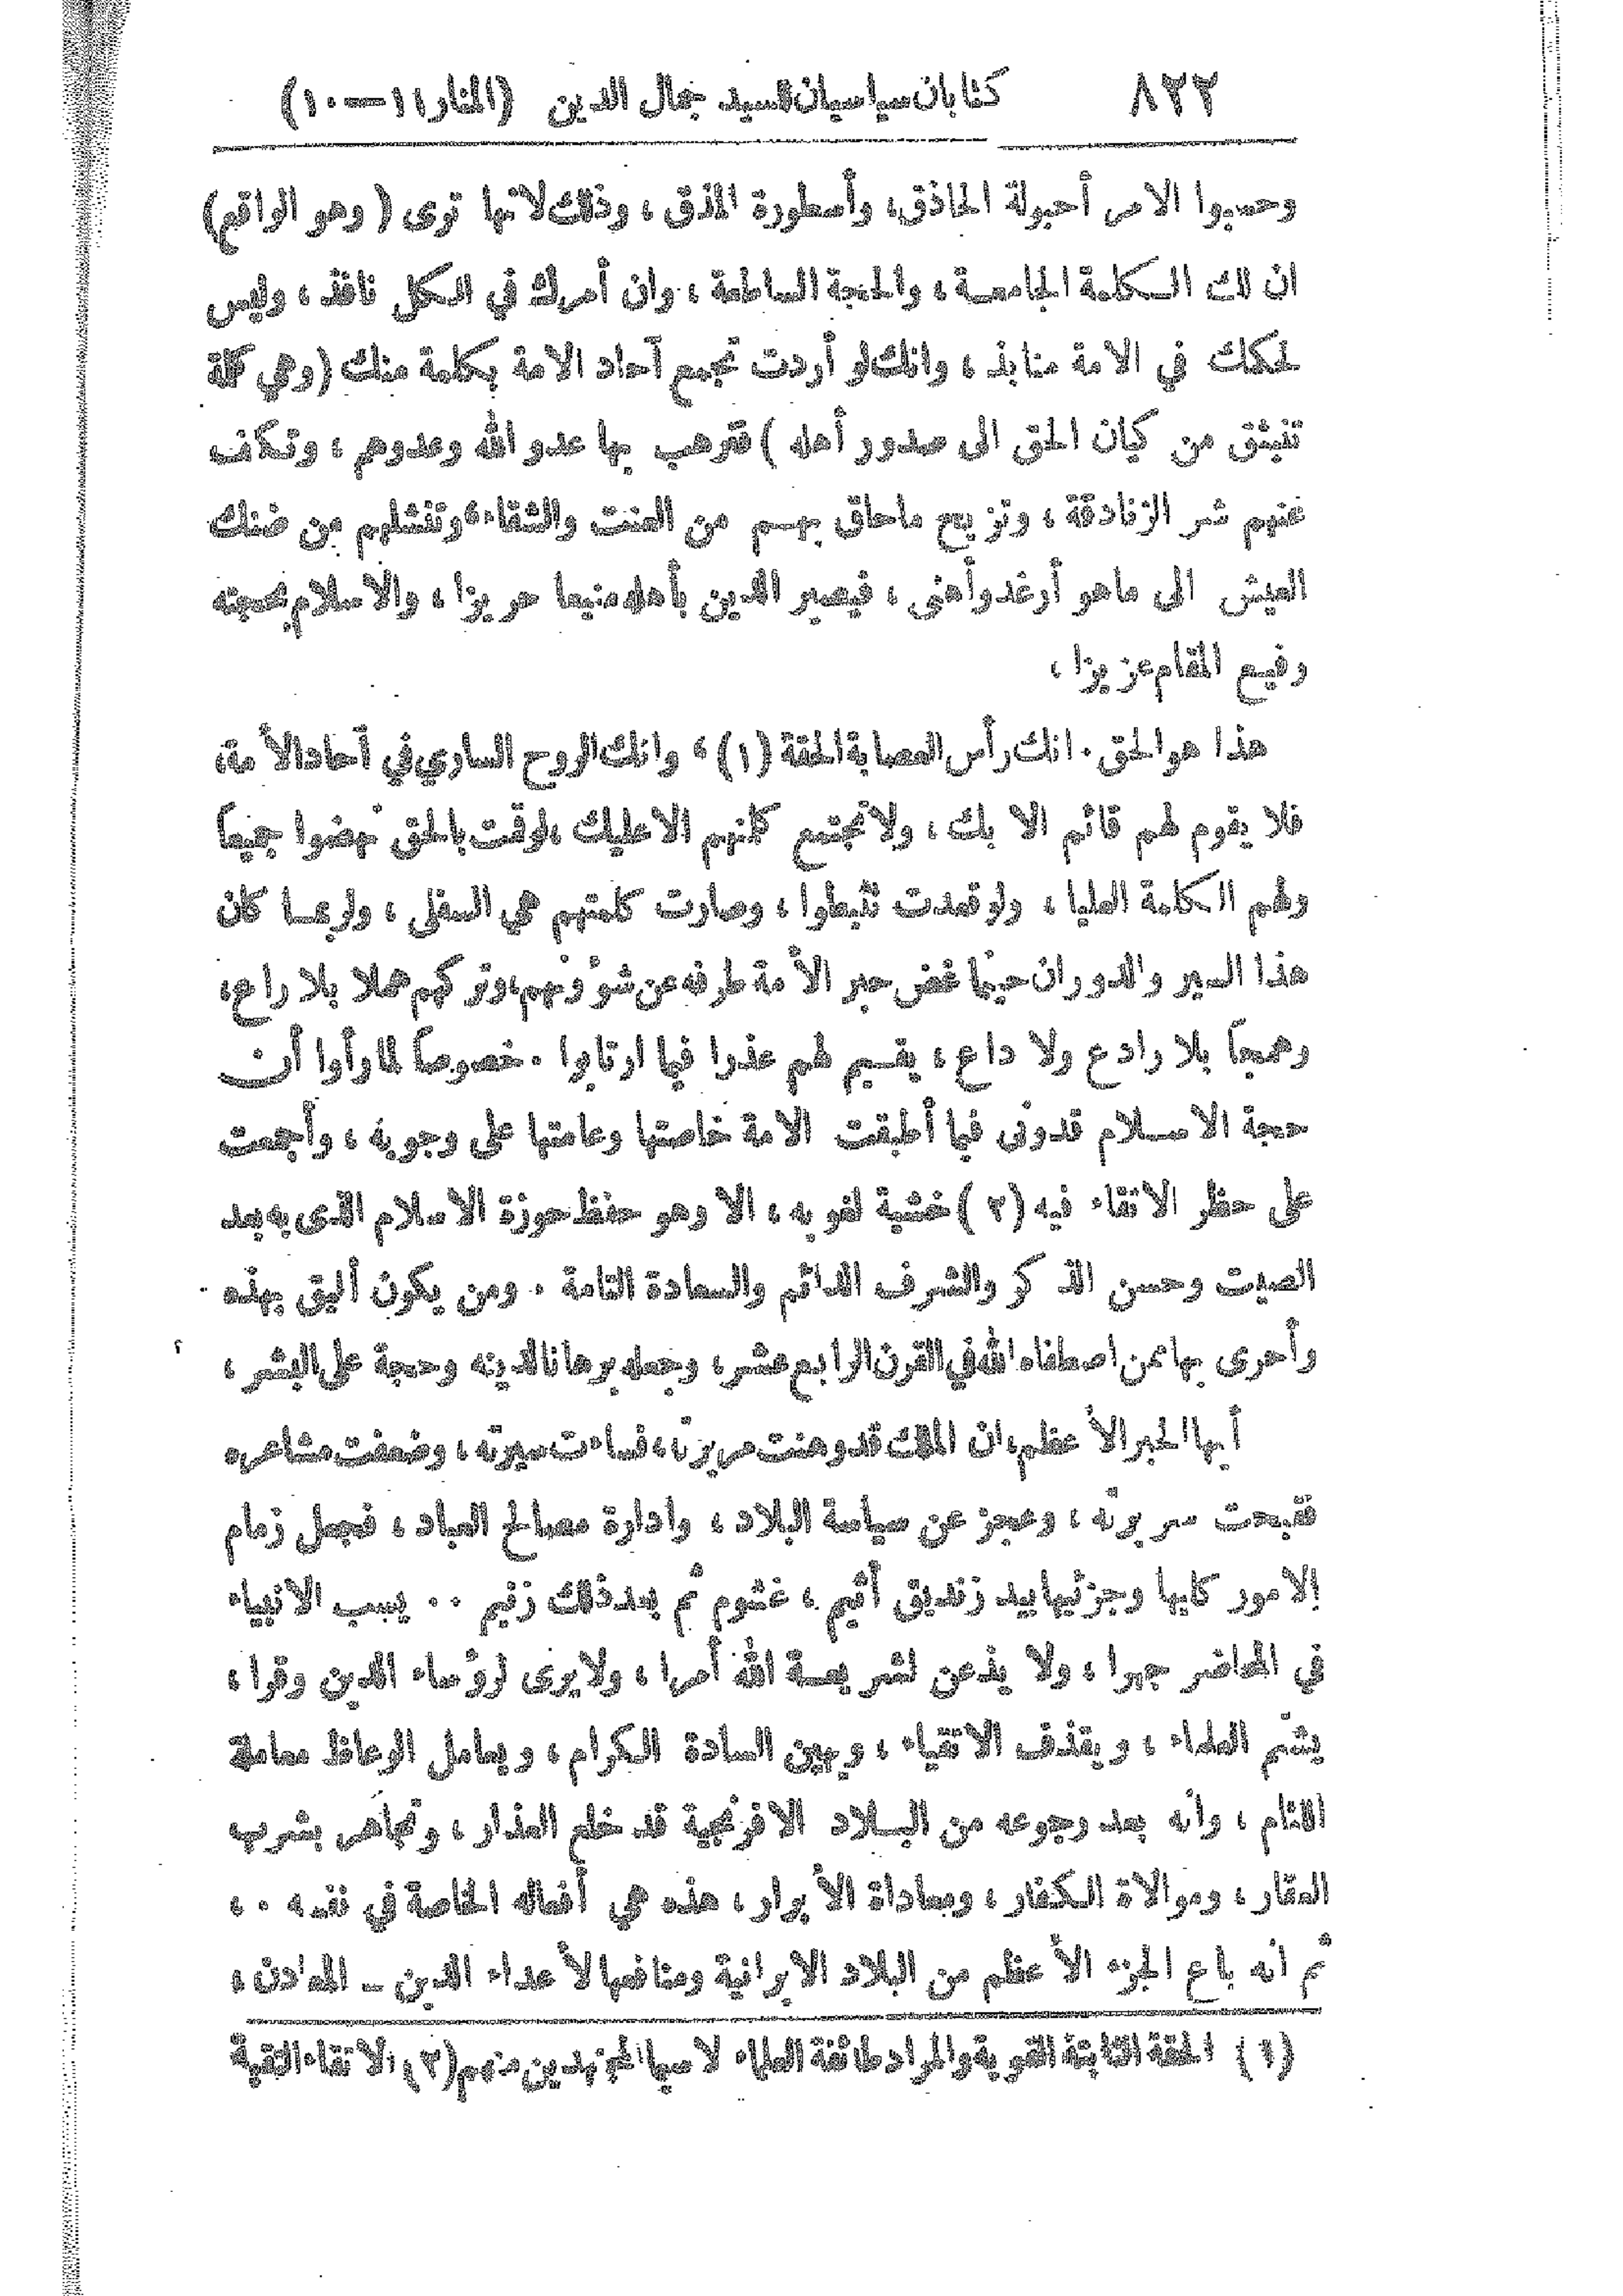 ٨٢٢ كتابان سياسيان للسيد جمال الدين (المنار ١١—١٠)
وحسبوا الامر أحبولة الحاذق، وأسطورة المذق، وذلك لانها ترى (وهو الواقع)
ان لك الكلمة الجامعة، والحجة الساطعة، وان أمرك في الكل نافذ، وليس
لحكمك في الامة منابذ، وانك لو أردت تجمع آحاد الامة بكلمة منك (وهي كلمة
تنبثق من كيان الحق الى صدور أهله) فترهب بها عدو الله وعدوهم، وتكف
عنهم شر الزنادقة، وتزيح ماحاق بهم من العنت والشقاء، وتنشلهم من ضنك
العيش الى ماهو أرغد وأهنى، فيصير الدين بأهله منيعا حريزا، والاسلام بحجته
رفيع المقام عزيزا،
هذا هو الحق. انك رأس العصابة الحقة (١)، وانك الروح الساري في آحاد الأمة،
فلا يقوم لهم قائم الا بك، ولا تجتمع كلمتهم الا عليك، لو قمت بالحق نهضوا جميعاً
ولهم الكلمة العليا، ولو قعدت تثبطوا، وصارت كلمتهم هي السفلى، ولربما كان
هذا السير والدوران حينما غض حبر الأمة طرفه عن شؤونهم، وتركهم هملا بلا راع،
وهمجاً بلا رادع ولا داع، يقيم لهم عذرا فيما ارتابوا. خصوصاً لما رأوا أن
حجة الاسلام قدونى فيما أطبقت الامة خاصتها وعامتها على وجوبه، وأجمعت
على حظر الاتقاء فيه (٢) خشية لغوبه، الا وهو حفظ حوزة الاسلام الذى به بعد
الصيت وحسن الذكر والشرف الدائم والسعادة التامة. ومن يكون أليق بهذه
وأحرى بها ممن اصطفاه الله في القرن الرابع عشر، وجعله برهانا لدينه وحجة على البشر،
أيها الحبر الأعظم، ان الملك قد وهنت مريرته، فساءت سيرته، وضعفت مشاعره
فقبحت سريرته، وعجز عن سياسة البلاد، وادارة مصالح العباد، فجعل زمام
الامور كليها وجزئيها بيد زنديق أثيم، غشوم ثم بعد ذلك زنيم.. يسب الانبياء
في المحاضر جهرا، ولا يذعن لشريعة الله أمرا، ولا يرى لرؤساء الدين وقرا،
يشتم العلماء، ويقذف الاتقياء، ويهين السادة الكرام، ويعامل الوعاظ معاملة
اللئام، وانه بعد رجوعه من البلاد الافرنجية قد خلع العذار، وتجاهر بشرب
العقار، وموالاة الكفار، ومعاداة الأبرار، هذه هي أفعاله الخاصة في نفسه..،
ثم انه باع الجزء الأعظم من البلاد الايرانية ومنافعها لأعداء الدين – المعادن،
(١) الحقة الثابتة القوية والمراد طائفة العلماء لا سيما المجتهدين منهم (٢) الاتقاء التقية